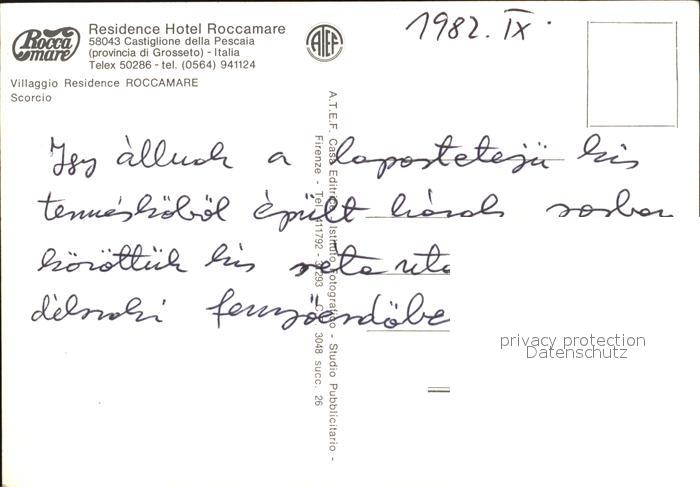 Rocca
mare
Residence Hotel Roccamare
58043 Castiglione della Pescaia
(provincia di Grosseto) - Italia
Telex 50286 - tel. (0564) 941124
Villaggio Residence ROCCAMARE
Scorcio
ATEF
1982. IX.
Igy állnak a lapostetejü kis
terméskőből épült házak sorban
közöttük kis séta
délszaki
A.T.E.F. Casa Editrice Istituto Fotografico - Studio Pubblicitario -
Firenze - Tel. 3048 succ. 26
privacy protection
Datenschutz